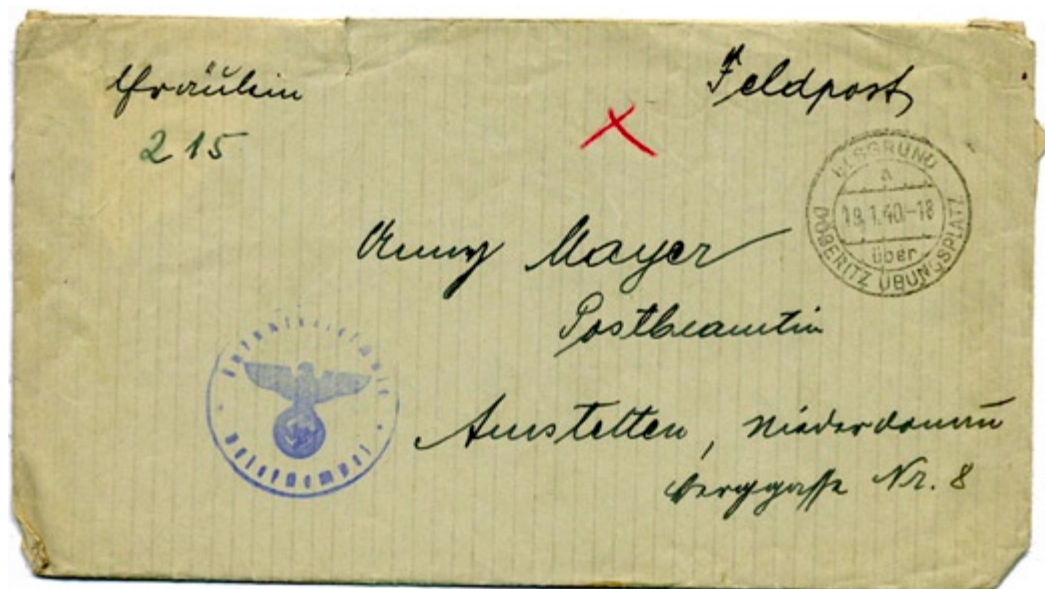 Fräulein
Feldpost
215
ELSGRUND
a
19.1.40.-18
über
DÖBERITZ ÜBUNGSPLATZ
Anny Mayer
Postbeamtin
Amstetten, Niederdonau
Berggasse Nr. 8